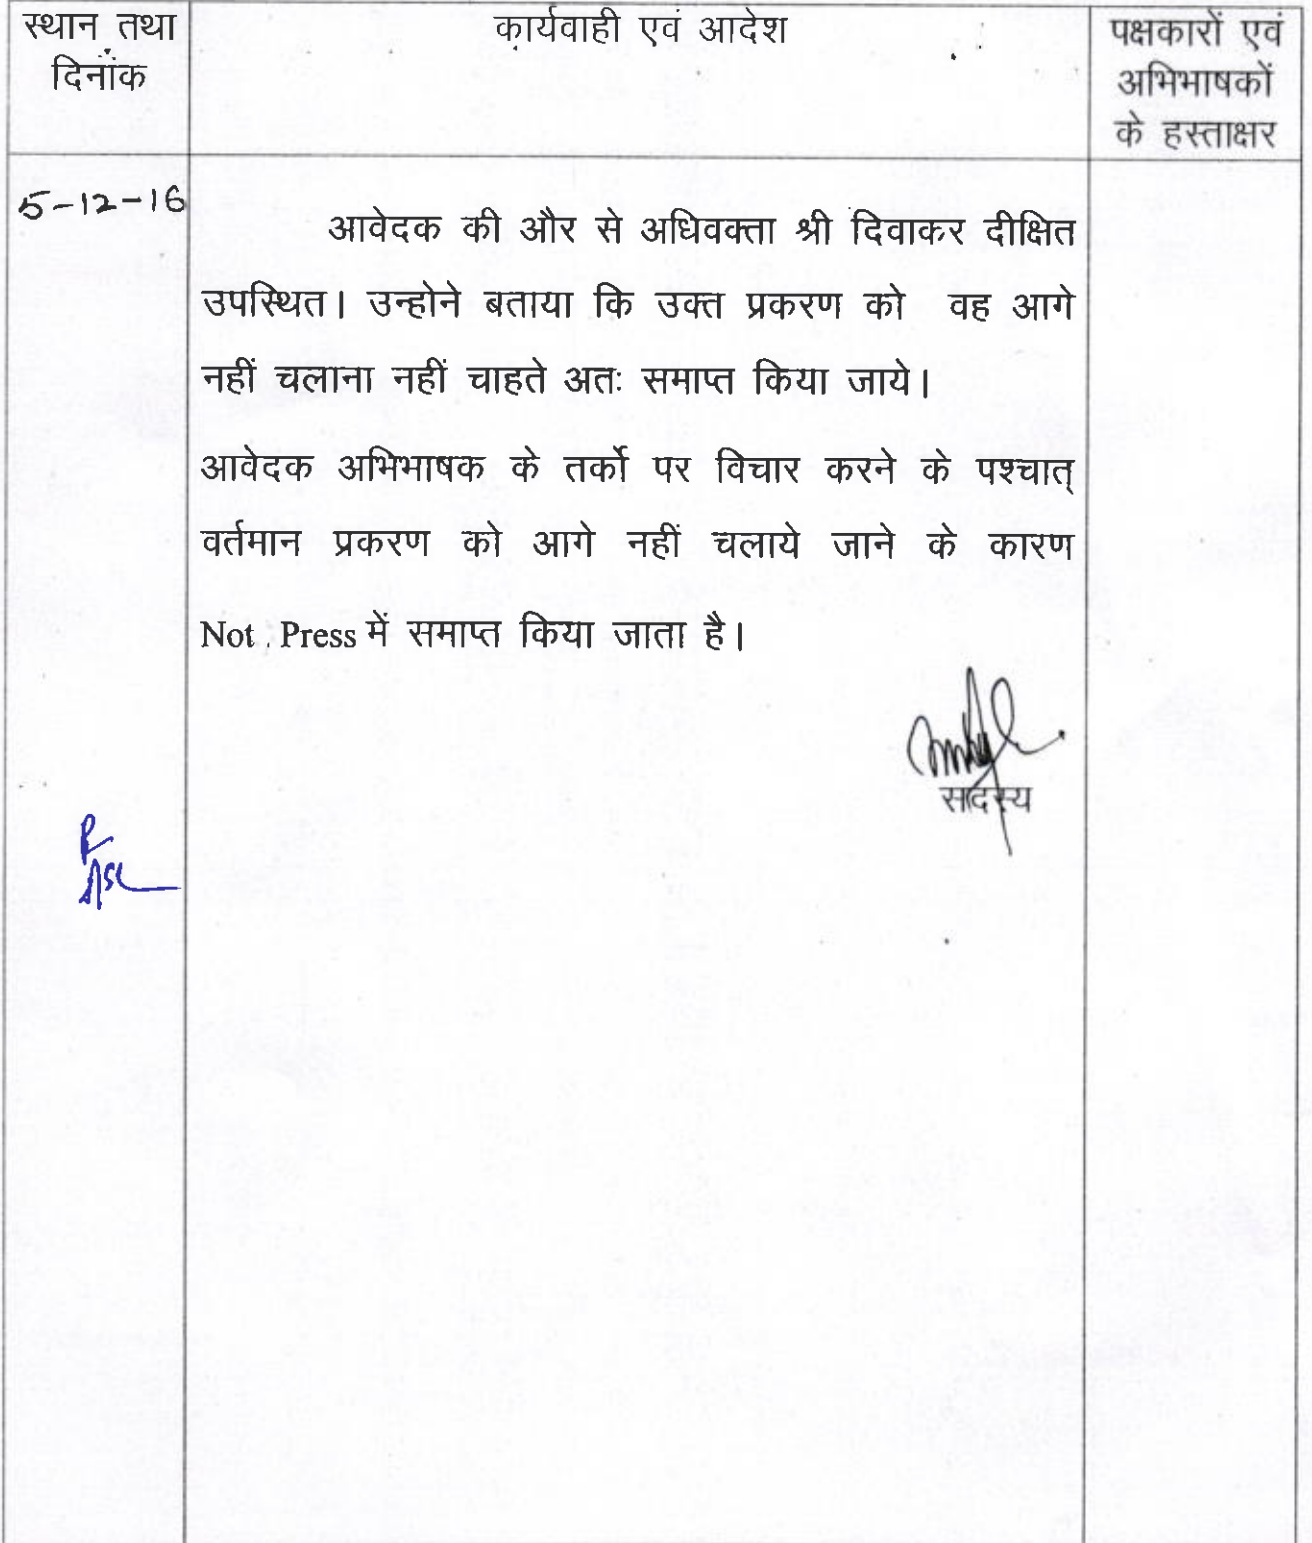 स्थान तथा
दिनांक
कार्यवाही एवं आदेश
पक्षकारों एवं
अभिभाषकों
के हस्ताक्षर
5-12-16
आवेदक की और से अधिवक्ता श्री दिवाकर दीक्षित
उपस्थित। उन्होने बताया कि उक्त प्रकरण को वह आगे
नहीं चलाना नहीं चाहते अतः समाप्त किया जाये।
आवेदक अभिभाषक के तर्को पर विचार करने के पश्चात्
वर्तमान प्रकरण को आगे नहीं चलाये जाने के कारण
Not Press में समाप्त किया जाता है।
सदस्य